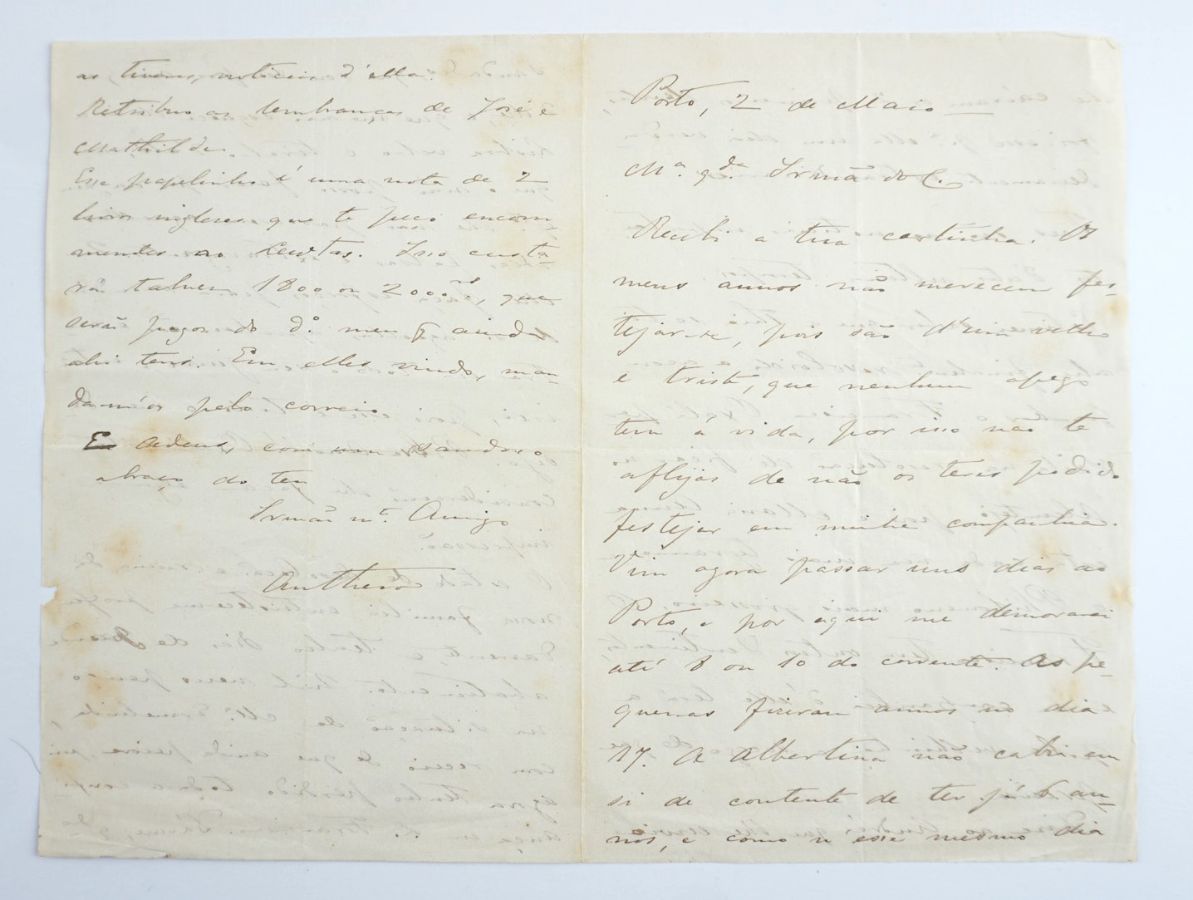 Porto, 2 de Maio
M.ª q.da Irmã do C.
Recebi a tua cartinha. Os
meus annos não merecem fes-
tejar-se, pois são d'um velho
e triste, que nenhum apego
tem á vida, por isso não te
aflijas de não os teres podido
festejar em minha companhia.
Vim agora passar uns dias ao
Porto, e por aqui me demorarei
até 8 ou 10 do corrente. As pe-
quenas fizeram annos no dia
17. A Albertina não cabia em
si de contente de ter já 6 an-
nos, e como n'esse mesmo dia
as tivemos noticias d'ella.
Retribuo as lembranças de José e
Mathilde.
Esse papelinho é uma nota de 2
livros inglezes que te peço encom
mendes ao Rewtas. Isso custa-
rá talvez 1800 ou 2000 rs, que
serão pagos do d.º meu q ainda
ahi tens. Em elles vindo, man-
da-m'os pelo correio.
E adeus, com um saudoso
abraço do teu
Irmão m.to Amigo
Anthero